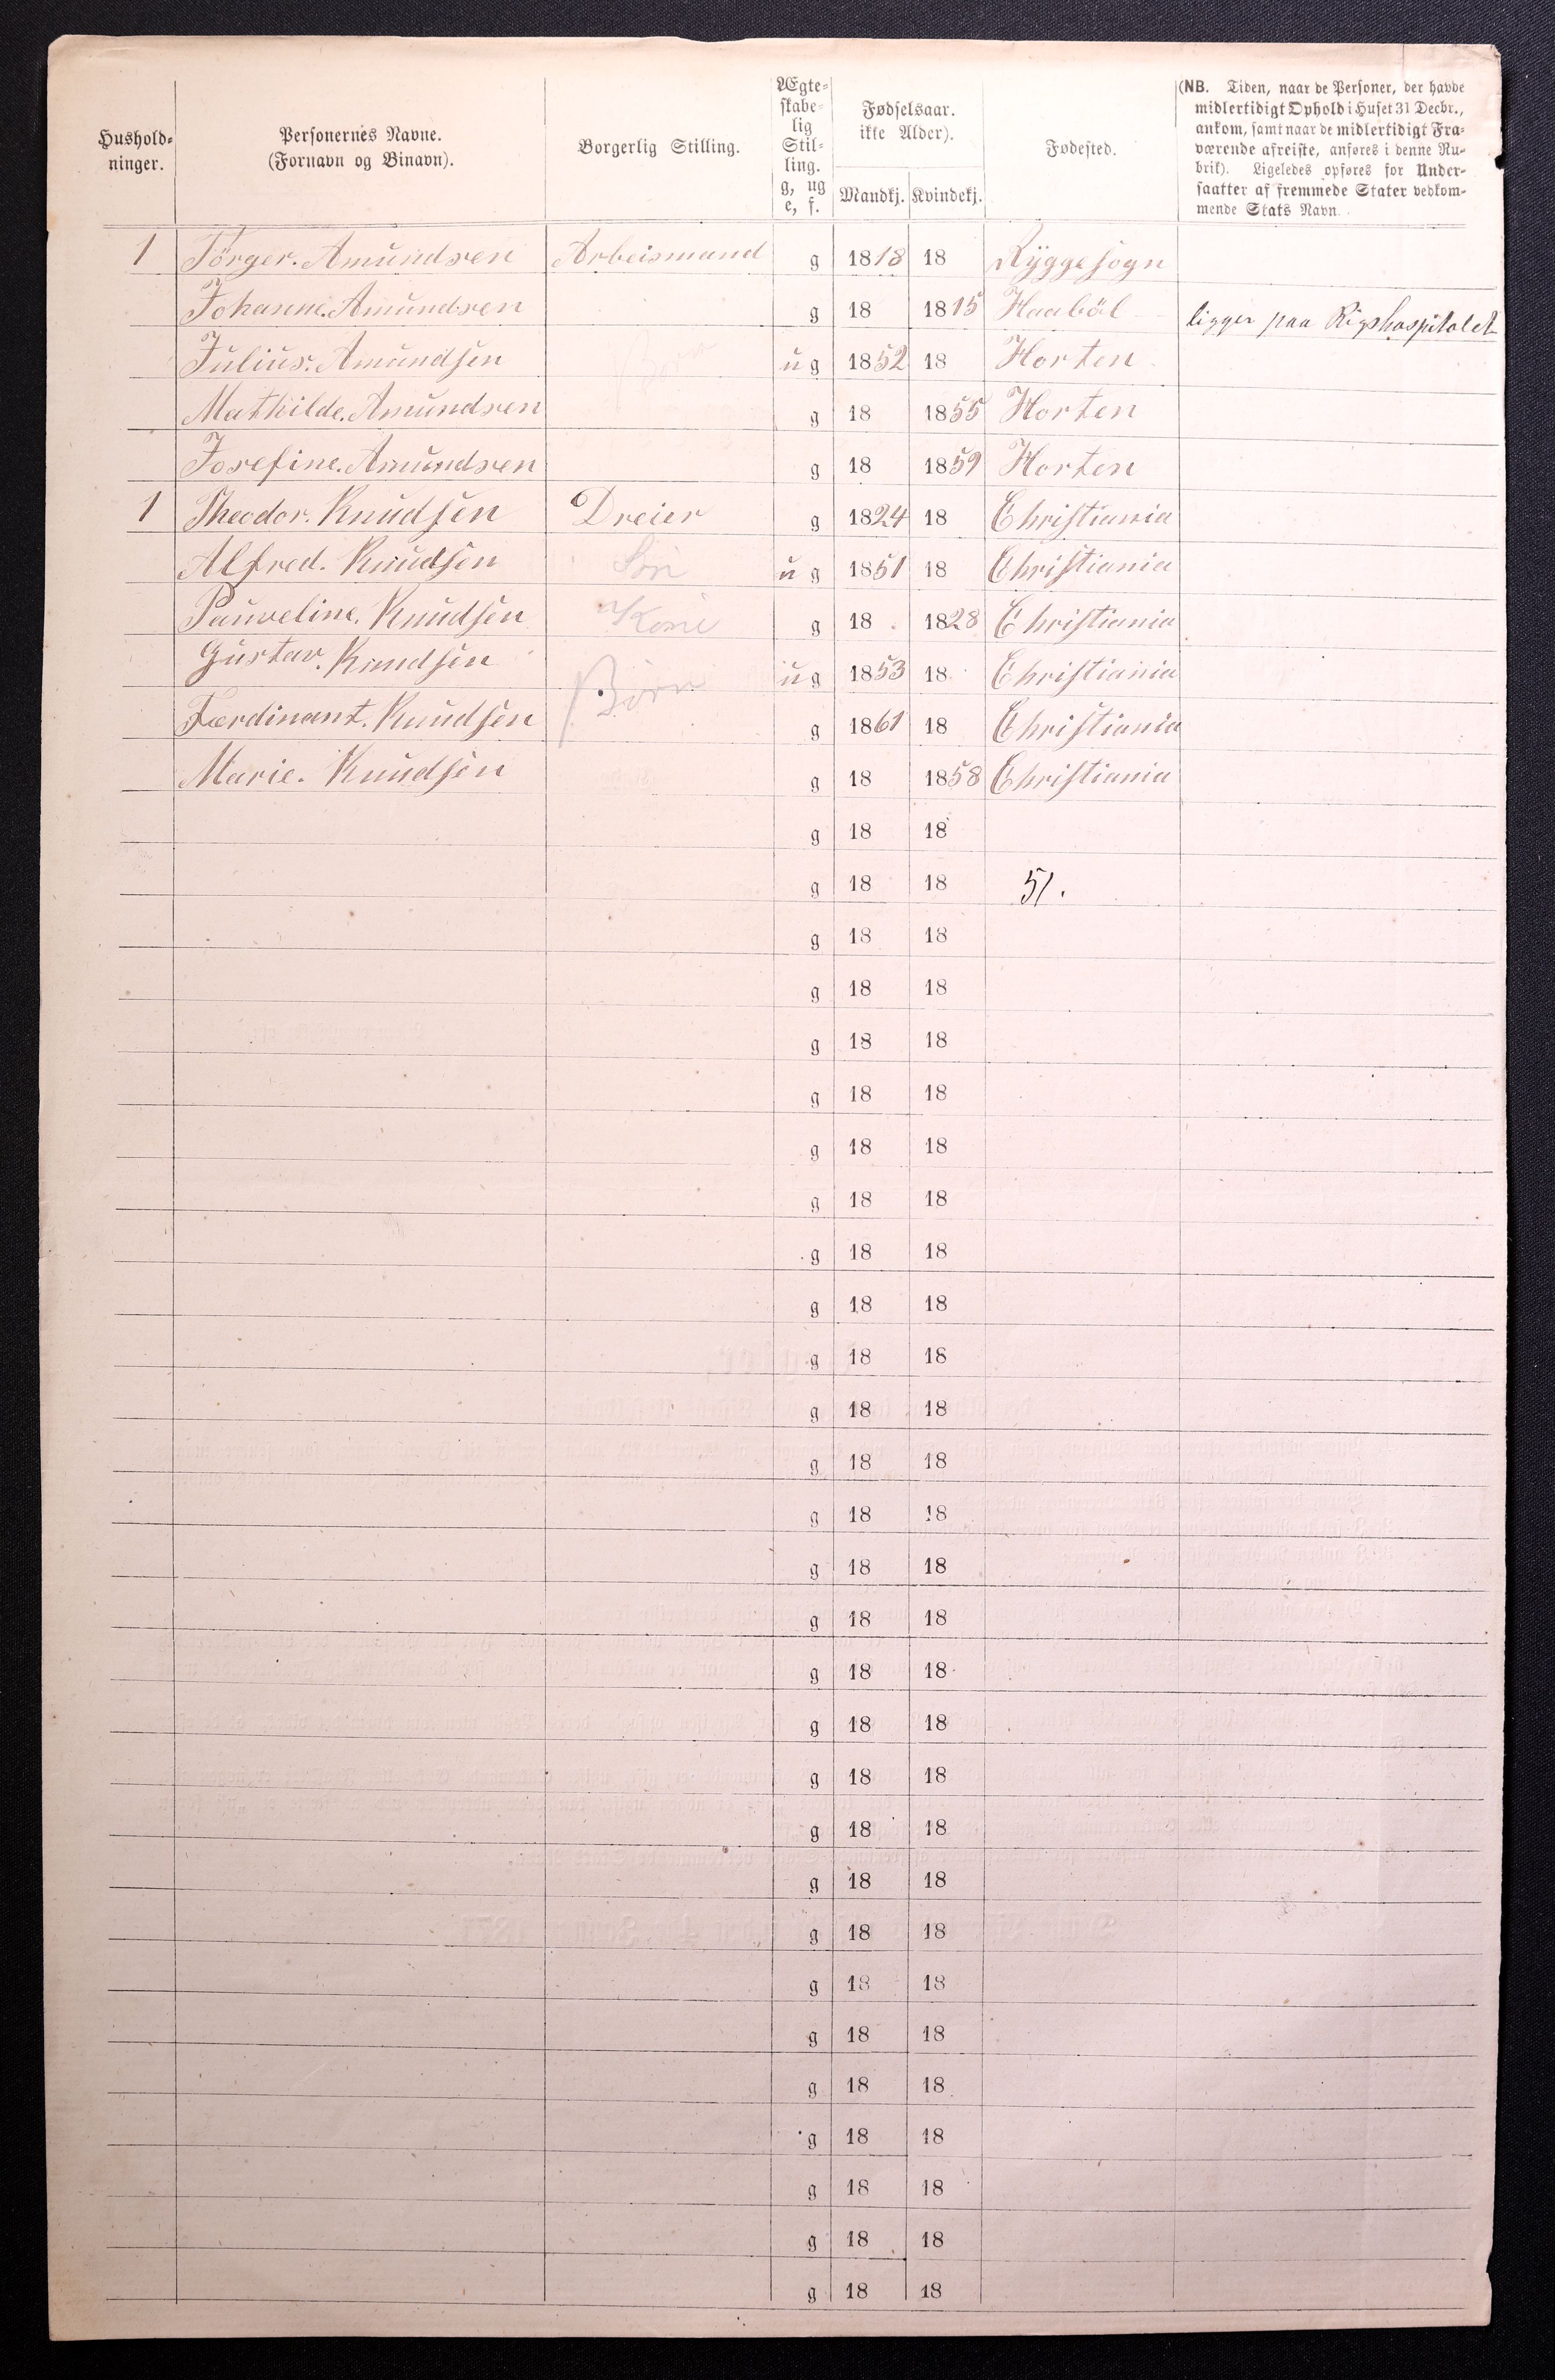 Hushold-
ninger.
Personernes Navne.
(Fornavn og Binavn).
Borgerlig Stilling.
Ægte-
skabe-
lig
Stil-
ling.
g, ug
e, f.
Fødselsaar.
ikke Alder).
Mandkj. Kvindekj.
Fødested.
(NB. Tiden, naar de Personer, der havde
midlertidigt Ophold i Huset 31 Decbr.,
ankom, samt naar de midlertidigt Fra-
værende afreiste, anføres i denne Ru-
brik). Ligeledes opføres for Under-
saatter af fremmede Stater vedkom-
mende Stats Navn.
1 Törger. Amundsen Arbeismand g 1818 18 Ryggesogn
Johanne. Amundsen g 18 1815 Haaböl ligger paa Rigshospitalet
Julius. Amundsen Børn ug 1852 18 Horten
Mathilde. Amundsen g 18 1855 Horten
Josefine. Amundsen g 18 1859 Horten
1 Theodor. Knudsen Dreier g 1824 18 Christiania
Alfred. Knudsen Søn ug 1851 18 Christiania
Pauveline. Knudsen Kone g 18 1828 Christiania
Gustav. Knudsen ug 1853 18 Christiania
Børn
Ferdinant. Knudsen g 1861 18 Christiania
Marie. Knudsen g 18 1858 Christiania
g 18 18
g 18 18 51.
g 18 18
g 18 18
g 18 18
g 18 18
g 18 18
g 18 18
g 18 18
g 18 18
g 18 18
g 18 18
g 18 18
g 18 18
g 18 18
g 18 18
g 18 18
g 18 18
g 18 18
g 18 18
g 18 18
g 18 18
g 18 18
g 18 18
g 18 18
g 18 18
g 18 18
g 18 18
g 18 18